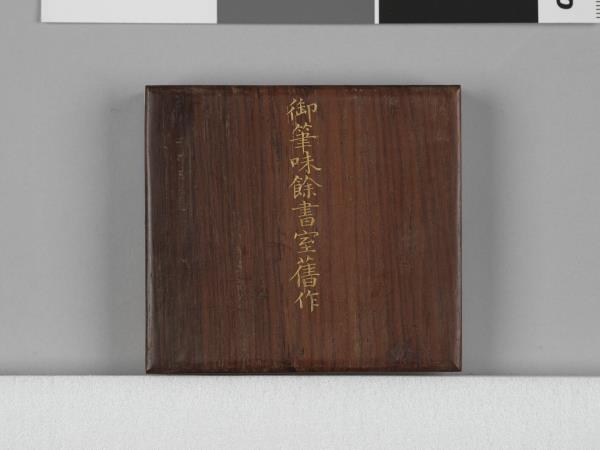 御筆味餘書室舊作